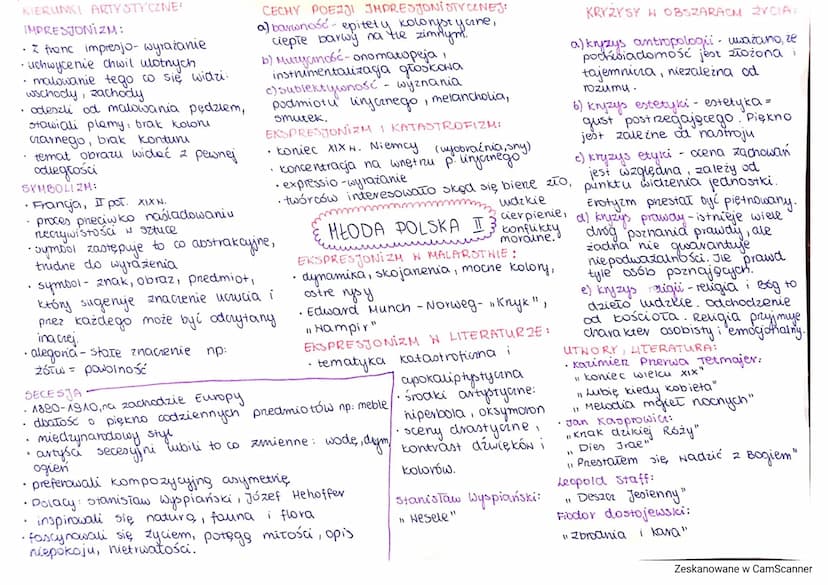 KIERUNKI ARTYSTYCZNE:
IMPRESJONIZM:
· z franc impresjo- wyrażanie
· uchwycenie chwil ulotnych
· malowanie tego co się widzi:
wschody, zachody
· odeszli od malowania pędzlem,
stawiali plamy, brak koloru
czarnego, brak konturu
· temat obrazu widać z pewnej
odległości
SYMBOLIZM:
· Francja, II poł. XIX w.
· proces przeciwko naśladowaniu
rzeczywistości w sztuce
· symbol zastępuje to co abstrakcyjne,
trudne do wyrażenia
· symbol- znak, obraz, przedmiot,
który sugeruje znaczenie uczucia i
przez każdego może być odczytany
inaczej.
· alegoria- stałe znaczenie np:
żółw = powolność
SECESJA
· 1890-1910, na zachodzie Europy
· dbałość o piękno codziennych przedmiotów np: meble
· międzynarodowy styl
· artyści secesyjni lubili to co zmienne: wodę, dym,
ogień
· preferowali kompozycyjną asymetrię
· Polacy: Stanisław Wyspiański, Józef Mehoffer
· inspirowali się naturą, fauną i florą
· fascynowali się życiem, potęgą miłości, opis
niepokoju, nietrwałości.
CECHY POEZJI IMPRESJONISTYCZNEJ:
a) barwność- epitety kolorystyczne,
ciepłe barwy na tle zimnym.
b) Muzyczność- onomatopeja,
instrumentalizacja głoskowa
c) subiektywność - wyznania
podmiotu lirycznego, melancholia,
smutek.
EKSPRESJONIZM I KATASTROFIZM:
· koniec XIX w. Niemcy (wyobraźnia, sny)
· koncentracja na wnętrzu p. lirycznego
· expressio- wyrażanie
· twórców interesowało skąd się bierze zło,
ludzkie
cierpienie,
konflikty
moralne.
MŁODA POLSKA II
EKSPRESJONIZM W MALARSTWIE:
· dynamika, skojarzenia, mocne kolory,
ostre rysy
· Edward Munch - Norweg- "Krzyk",
"Wampir"
EKSPRESJONIZM W LITERATURZE:
· tematyka katastroficzna i
apokaliptystyczna
· środki artystyczne:
hiperbola, oksymoron
· sceny drastyczne,
kontrast dźwięków i
kolorów.
Stanisław Wyspiański:
"Wesele"
KRYZYSY W OBSZARACH ŻYCIA:
a) kryzys antropologii - uważano, że
podświadomość jest złożona i
tajemnicza, niezależna od
rozumu.
b) kryzys estetyki - estetyka =
gust postrzegającego. Piękno
jest zależne od nastroju
c) kryzys etyki - ocena zachowań
jest względna, zależy od
punktu widzenia jednostki.
Erotyzm przestał być piętnowany.
d) kryzys prawdy- istnieje wiele
dróg poznania prawdy, ale
żadna nie gwarantuje
niepodważalności. Ile prawd
tyle osób poznających.
e) kryzys religii - religia i Bóg to
dzieło ludzkie. Odchodzenie
od kościoła. Religia przyjmuje
charakter osobisty i emocjonalny.
UTWORY, LITERATURA:
· Kazimierz Przerwa Tetmajer:
"Koniec wieku XIX"
"Lubię kiedy kobieta"
"Melodia mgieł nocnych"
· Jan Kasprowicz:
"Krzak dzikiej Róży"
"Dies Irae"
"Przestałem się wadzić z Bogiem"
Leopold Staff:
"Deszcz Jesienny"
Fiodor dostojewski:
"zbrodnia i kara"
Zeskanowane w CamScanner